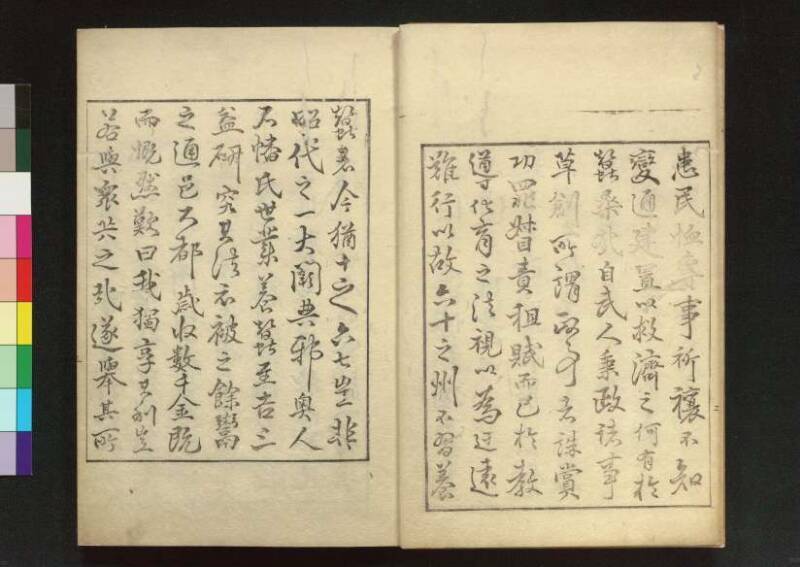 患民恤専事祈禳不知
變通建置以救濟之何有於
蠶桑哉自武人秉政諸事
草創所謂政事者誅賞
功罪督責租賦而已於教
導化育之法視以為迂遠
難行以故六十之州不習養
蠶者今猶十之六七豈非
昭代之一大闕典邪奥人
石幡氏世業養蠶至吉三
益研究其法衣被之餘鬻
之通邑大都歳收數千金既
而慨然歎曰我獨享其利豈
若與衆共之哉遂舉其所